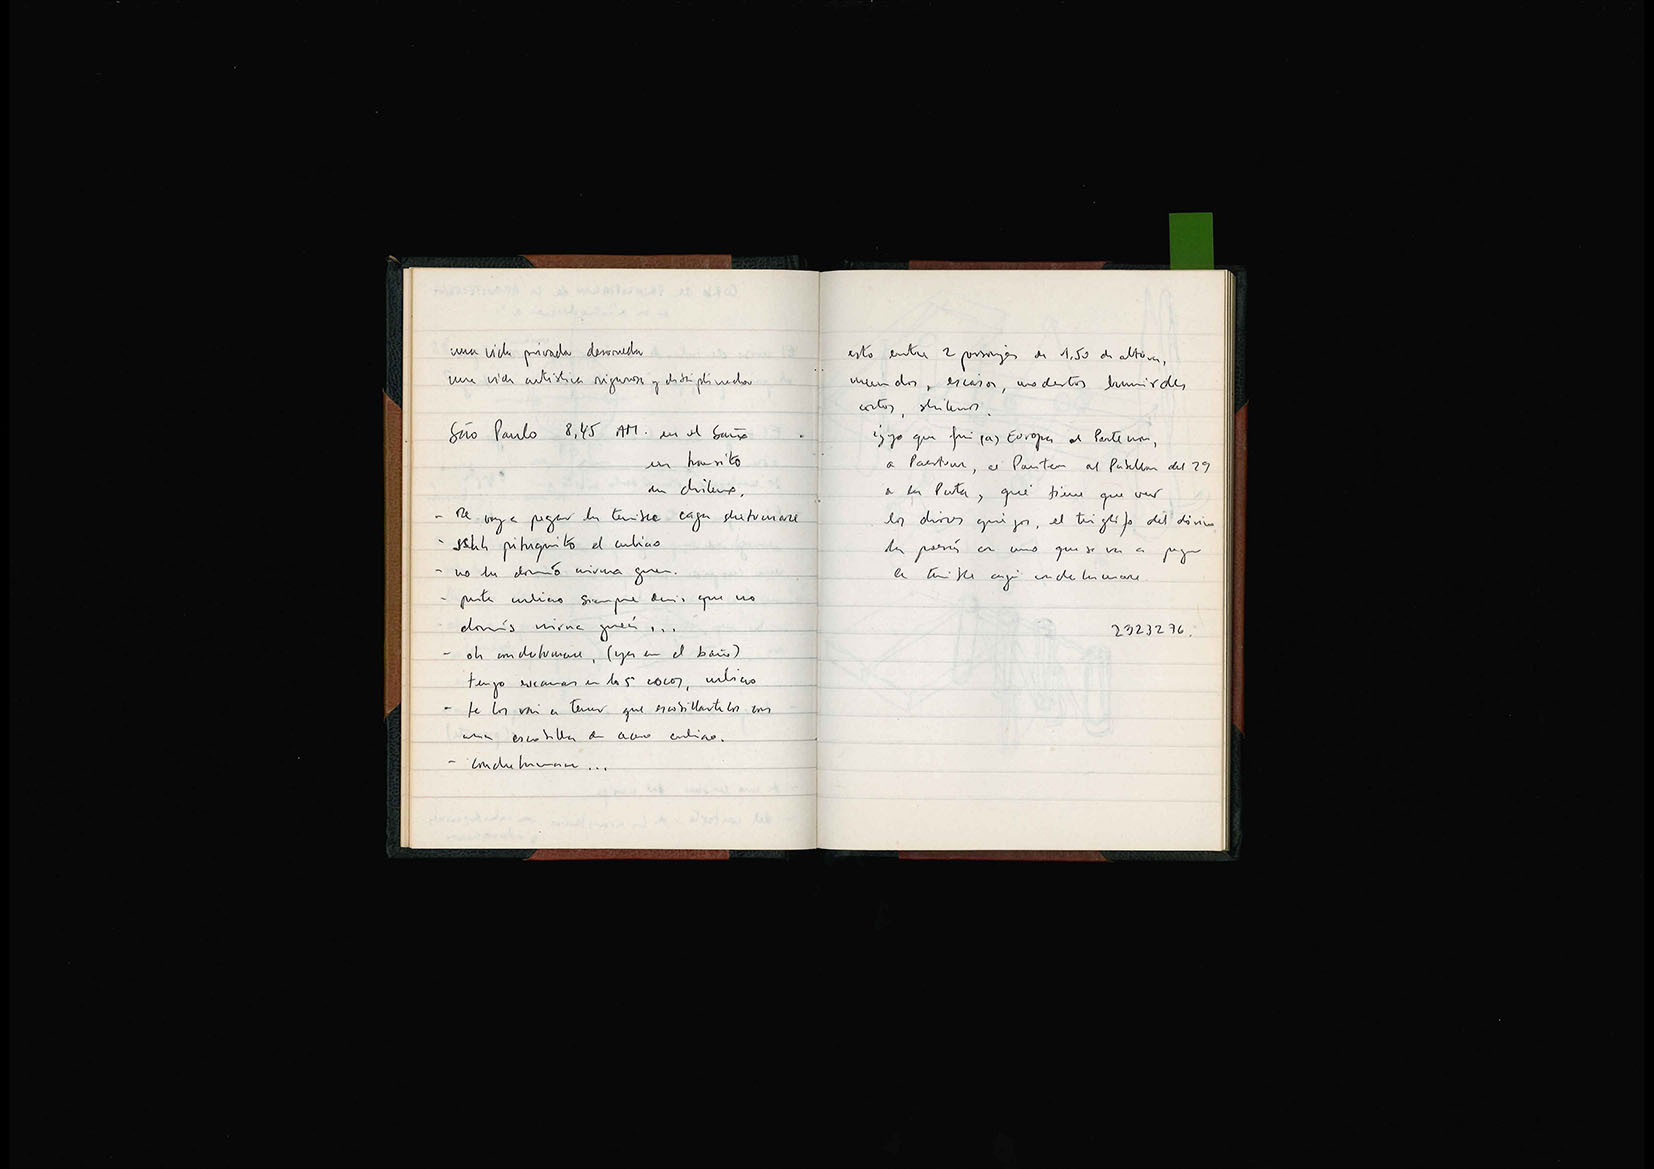 una vida privada desordenada
una vida artística rigurosa y disciplinada
São Paulo 8,45 AM. en el baño
en tránsito
un chileno,
- me voy a pegar la terrible caga
- pituquito el culiao
- no ha dormío niuna
- puta culiao siempre decis que no
dormís niuna ...
- oh conchetumare, (ya en el baño)
tengo escamas en los cocos, culiao
- te los vai a tener que escobillartelos con
una escobilla de acero culiao.
- conchetumare ...
esto entre 2 personajes de 1,50 de altura,
menudos, escasos, modestos humildes
cortos, chilenos.
¿y yo que fui (a) Europa al Partenon,
a Paestum, al Panteon al Pabellon del 29
a la Puta, qué tiene que ver
los dioses griegos, el triglifo del dórico
la poesía con uno que se va a pegar
la terrible cagá conchetumare
2323276.